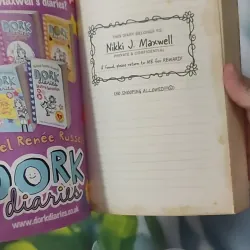 Maxwell's diaries?
DORK
diaries
DORK
el Renée Russe
DORK
diaries
www.dorkdiaries.co.uk
THIS DIARY BELONGS TO:
Nikki J. Maxwell
PRIVATE & CONFIDENTIAL
If found, please return to ME for REWARD!
(NO SNOOPING ALLOWED!!!☹)